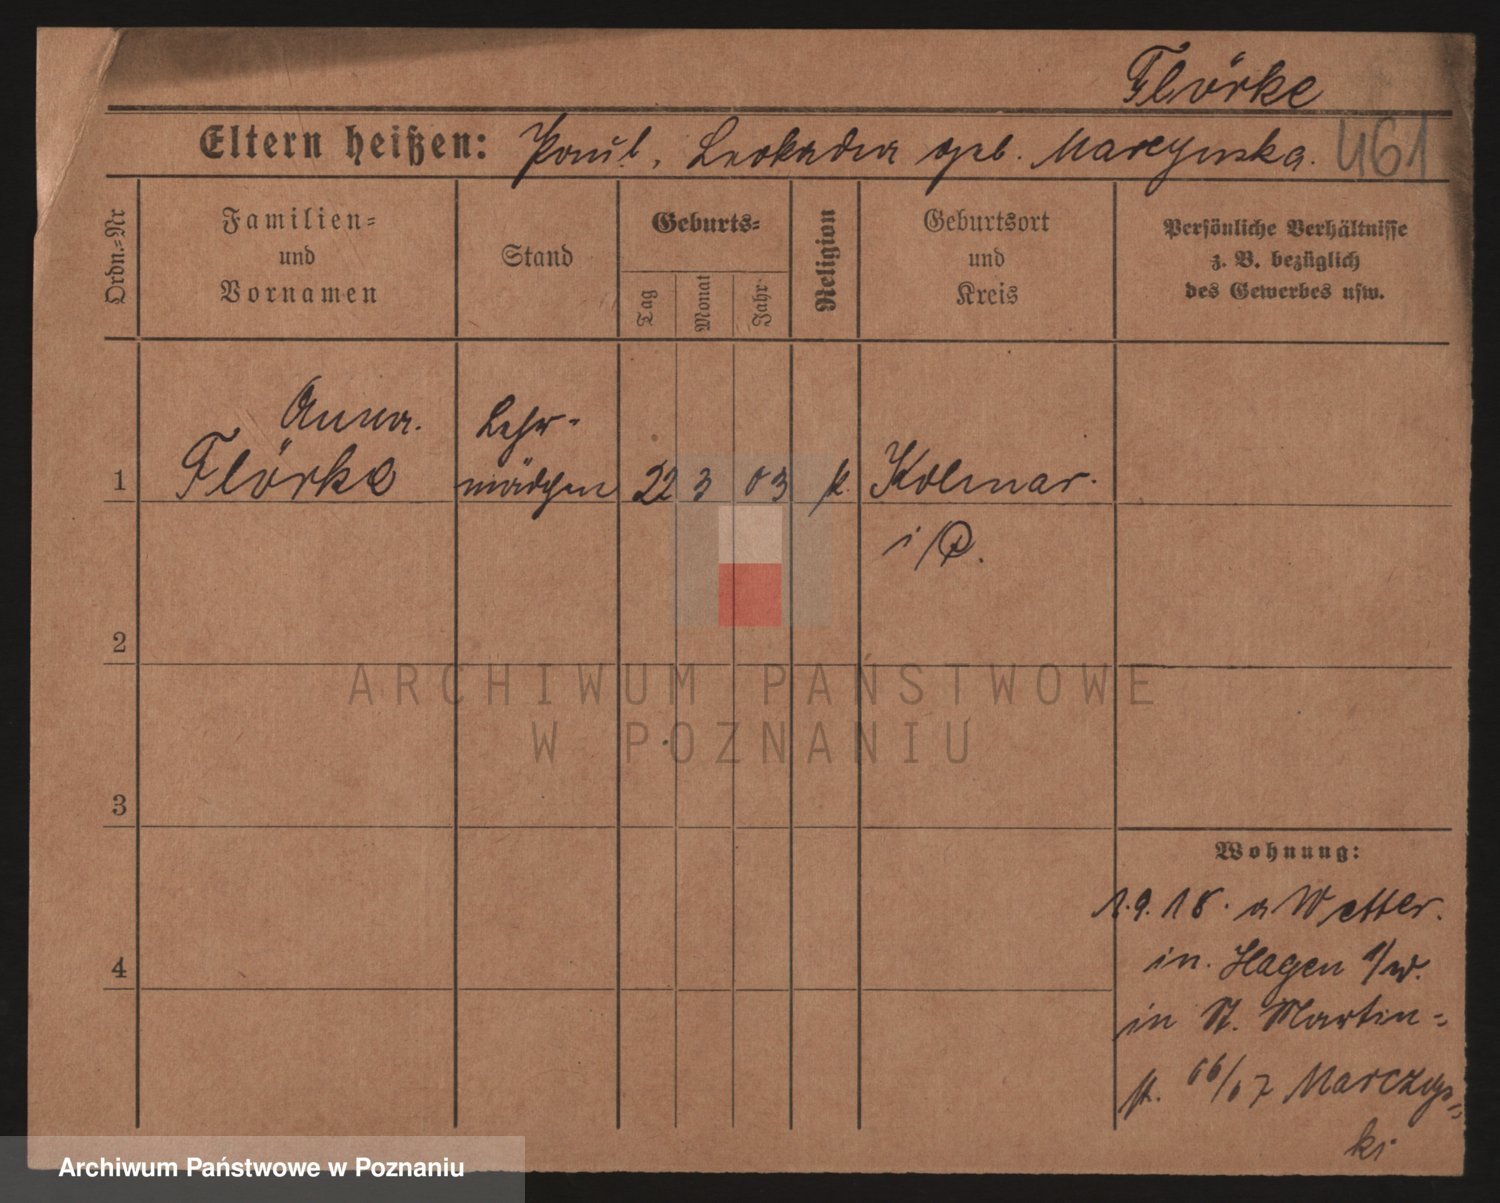 Flörke
Eltern heißen: Paul, Leokadia geb. Marcynska. 461
Ordn.=Nr
Familien=
und
Vornamen
Stand
Geburts=
Tag
Monat
Jahr
Religion
Geburtsort
und
Kreis
Persönliche Verhältnisse
z. B. bezüglich
des Gewerbes usw.
Anna.
Lehr-
1 Flörke mädchen 22 3 03 k. Kolmar.
i/P.
2
ARCHIWUM PAŃSTWOWE
W POZNANIU
3
Wohnung:
1.9.18. a Wetter.
in. Hagen /w.
4
in St. Martin=
st. 66/67 Marczys=
ki
Archiwum Państwowe w Poznaniu